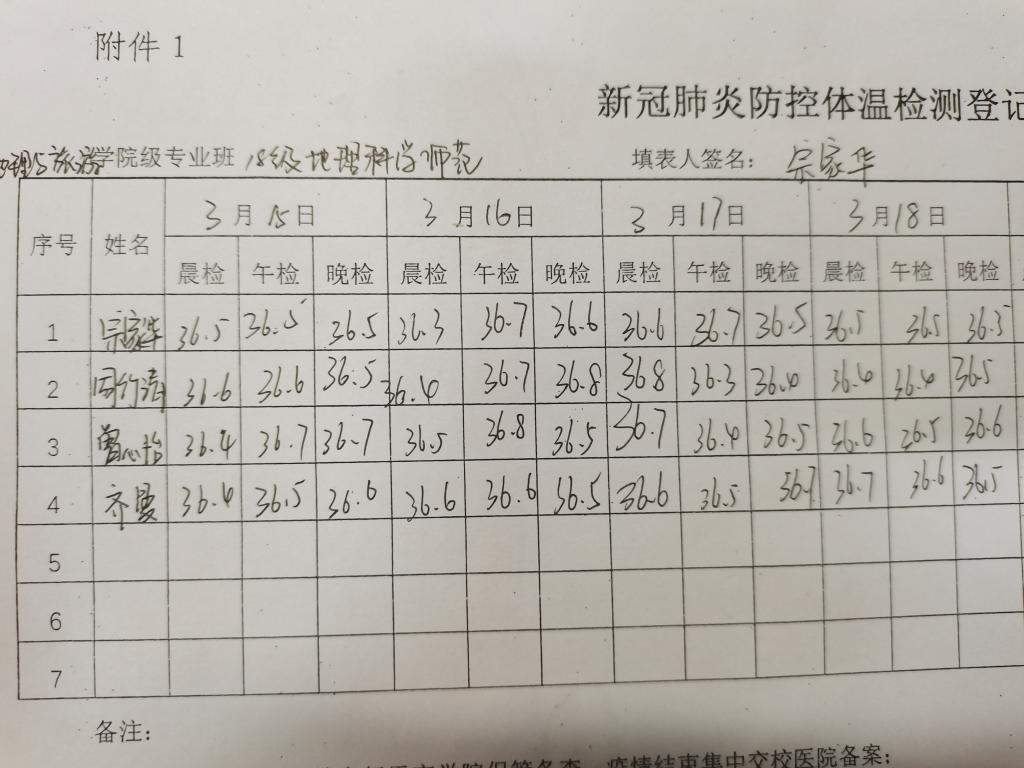 附件 1
新冠肺炎防控体温检测登记
地理与旅游学院级专业班 18级地理科学师范 填表人签名：宗家华
序号 姓名 3月15日 3月16日 3月17日 3月18日
晨检 午检 晚检 晨检 午检 晚检 晨检 午检 晚检 晨检 午检 晚检
1 宗家华 36.5 36.5 36.5 36.3 36.7 36.6 36.6 36.7 36.5 36.5 36.5 36.5
2 36.6 36.6 36.5 36.4 36.7 36.8 36.8 36.3 36.4 36.4 36.4 36.5
3 曾心怡 36.4 36.7 36.7 36.5 36.8 36.5 36.7 36.4 36.5 36.6 26.5 36.6
4 齐曼 36.4 36.5 36.6 36.6 36.6 36.5 36.6 36.5 36.7 36.7 36.6 36.5
5
6
7
备注：
疫情结束集中交校医院备案；